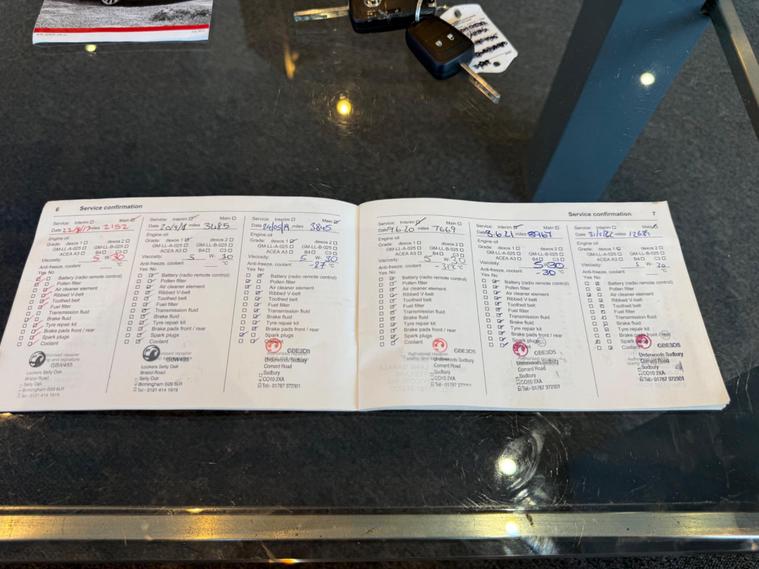 6 Service confirmation
Service: Interim Main
Date 22/8/17 miles 2152
Engine oil
Grade: dexos 1 dexos 2
GM-LL-A-025 GM-LL-B-025
ACEA A3 B4 C3
Viscosity: 5 W- 30
Anti-freeze, coolant °C
Yes No
Battery (radio remote control)
Pollen filter
Air cleaner element
Ribbed V-belt
Toothed belt
Fuel filter
Transmission fluid
Brake fluid
Tyre repair kit
Brake pads front / rear
Spark plugs
Coolant
GBW455
Lookers Selly Oak
Bristol Road
Selly Oak
Birmingham
Service: Interim Main
miles 3485
Engine oil
Grade: dexos 1 dexos 2
GM-LL-A-025 GM-LL-B-025
ACEA A3 B4 C3
Viscosity: 5 W- 30
Anti-freeze, coolant °C
Yes No
Battery (radio remote control)
Pollen filter
Air cleaner element
Ribbed V-belt
Toothed belt
Fuel filter
Transmission fluid
Brake fluid
Tyre repair kit
Brake pads front / rear
Spark plugs
Coolant
Lookers Selly Oak
Bristol Road
Selly Oak
Birmingham
Service: Interim Main
miles 3845
Engine oil
Grade: dexos 1 dexos 2
GM-LL-A-025 GM-LL-B-025
ACEA A3 B4 C3
Viscosity: 5 W- 30
Anti-freeze, coolant -27 °C
Yes No
Battery (radio remote control)
Pollen filter
Air cleaner element
Ribbed V-belt
Toothed belt
Fuel filter
Transmission fluid
Brake fluid
Tyre repair kit
Brake pads front / rear
Spark plugs
Coolant
GBE3D5
Underwoods Sudbury
Cornard Road
Sudbury
CO10 2XA
Tel:- 01787 372301
Service confirmation 7
Service: Interim Main
miles 7669
Engine oil
Grade: dexos 1 dexos 2
GM-LL-A-025 GM-LL-B-025
ACEA A3 B4 C3
Viscosity: 5 W- 30
Anti-freeze, coolant
Yes No
Battery (radio remote control)
Pollen filter
Air cleaner element
Ribbed V-belt
Toothed belt
Fuel filter
Transmission fluid
Brake fluid
Tyre repair kit
Brake pads front / rear
Spark plugs
Coolant
GBE3D5
Underwoods Sudbury
Cornard Road
Sudbury
CO10 2XA
Tel:- 01787 372301
Service: Interim Main
Engine oil
Grade: dexos 1 dexos 2
GM-LL-A-025 GM-LL-B-025
ACEA A3 B4 C3
Viscosity: 5-30
Anti-freeze, coolant -30
Yes No
Battery (radio remote control)
Pollen filter
Air cleaner element
Ribbed V-belt
Toothed belt
Fuel filter
Transmission fluid
Brake fluid
Tyre repair kit
Brake pads front / rear
Spark plugs
Coolant
GBE3D5
Underwoods Sudbury
Cornard Road
Sudbury
CO10 2XA
Tel:- 01787 372301
Service: Interim Main
Engine oil
Grade: dexos 1 dexos 2
GM-LL-A-025 GM-LL-B-025
ACEA A3 B4 C3
Viscosity: 5 W- 30
Anti-freeze, coolant
Yes No
Battery (radio remote control)
Pollen filter
Air cleaner element
Ribbed V-belt
Toothed belt
Fuel filter
Transmission fluid
Brake fluid
Tyre repair kit
Brake pads front / rear
Spark plugs
GBE3D5
Underwoods Sudbury
Cornard Road
Sudbury
CO10 2XA
Tel:- 01787 372301